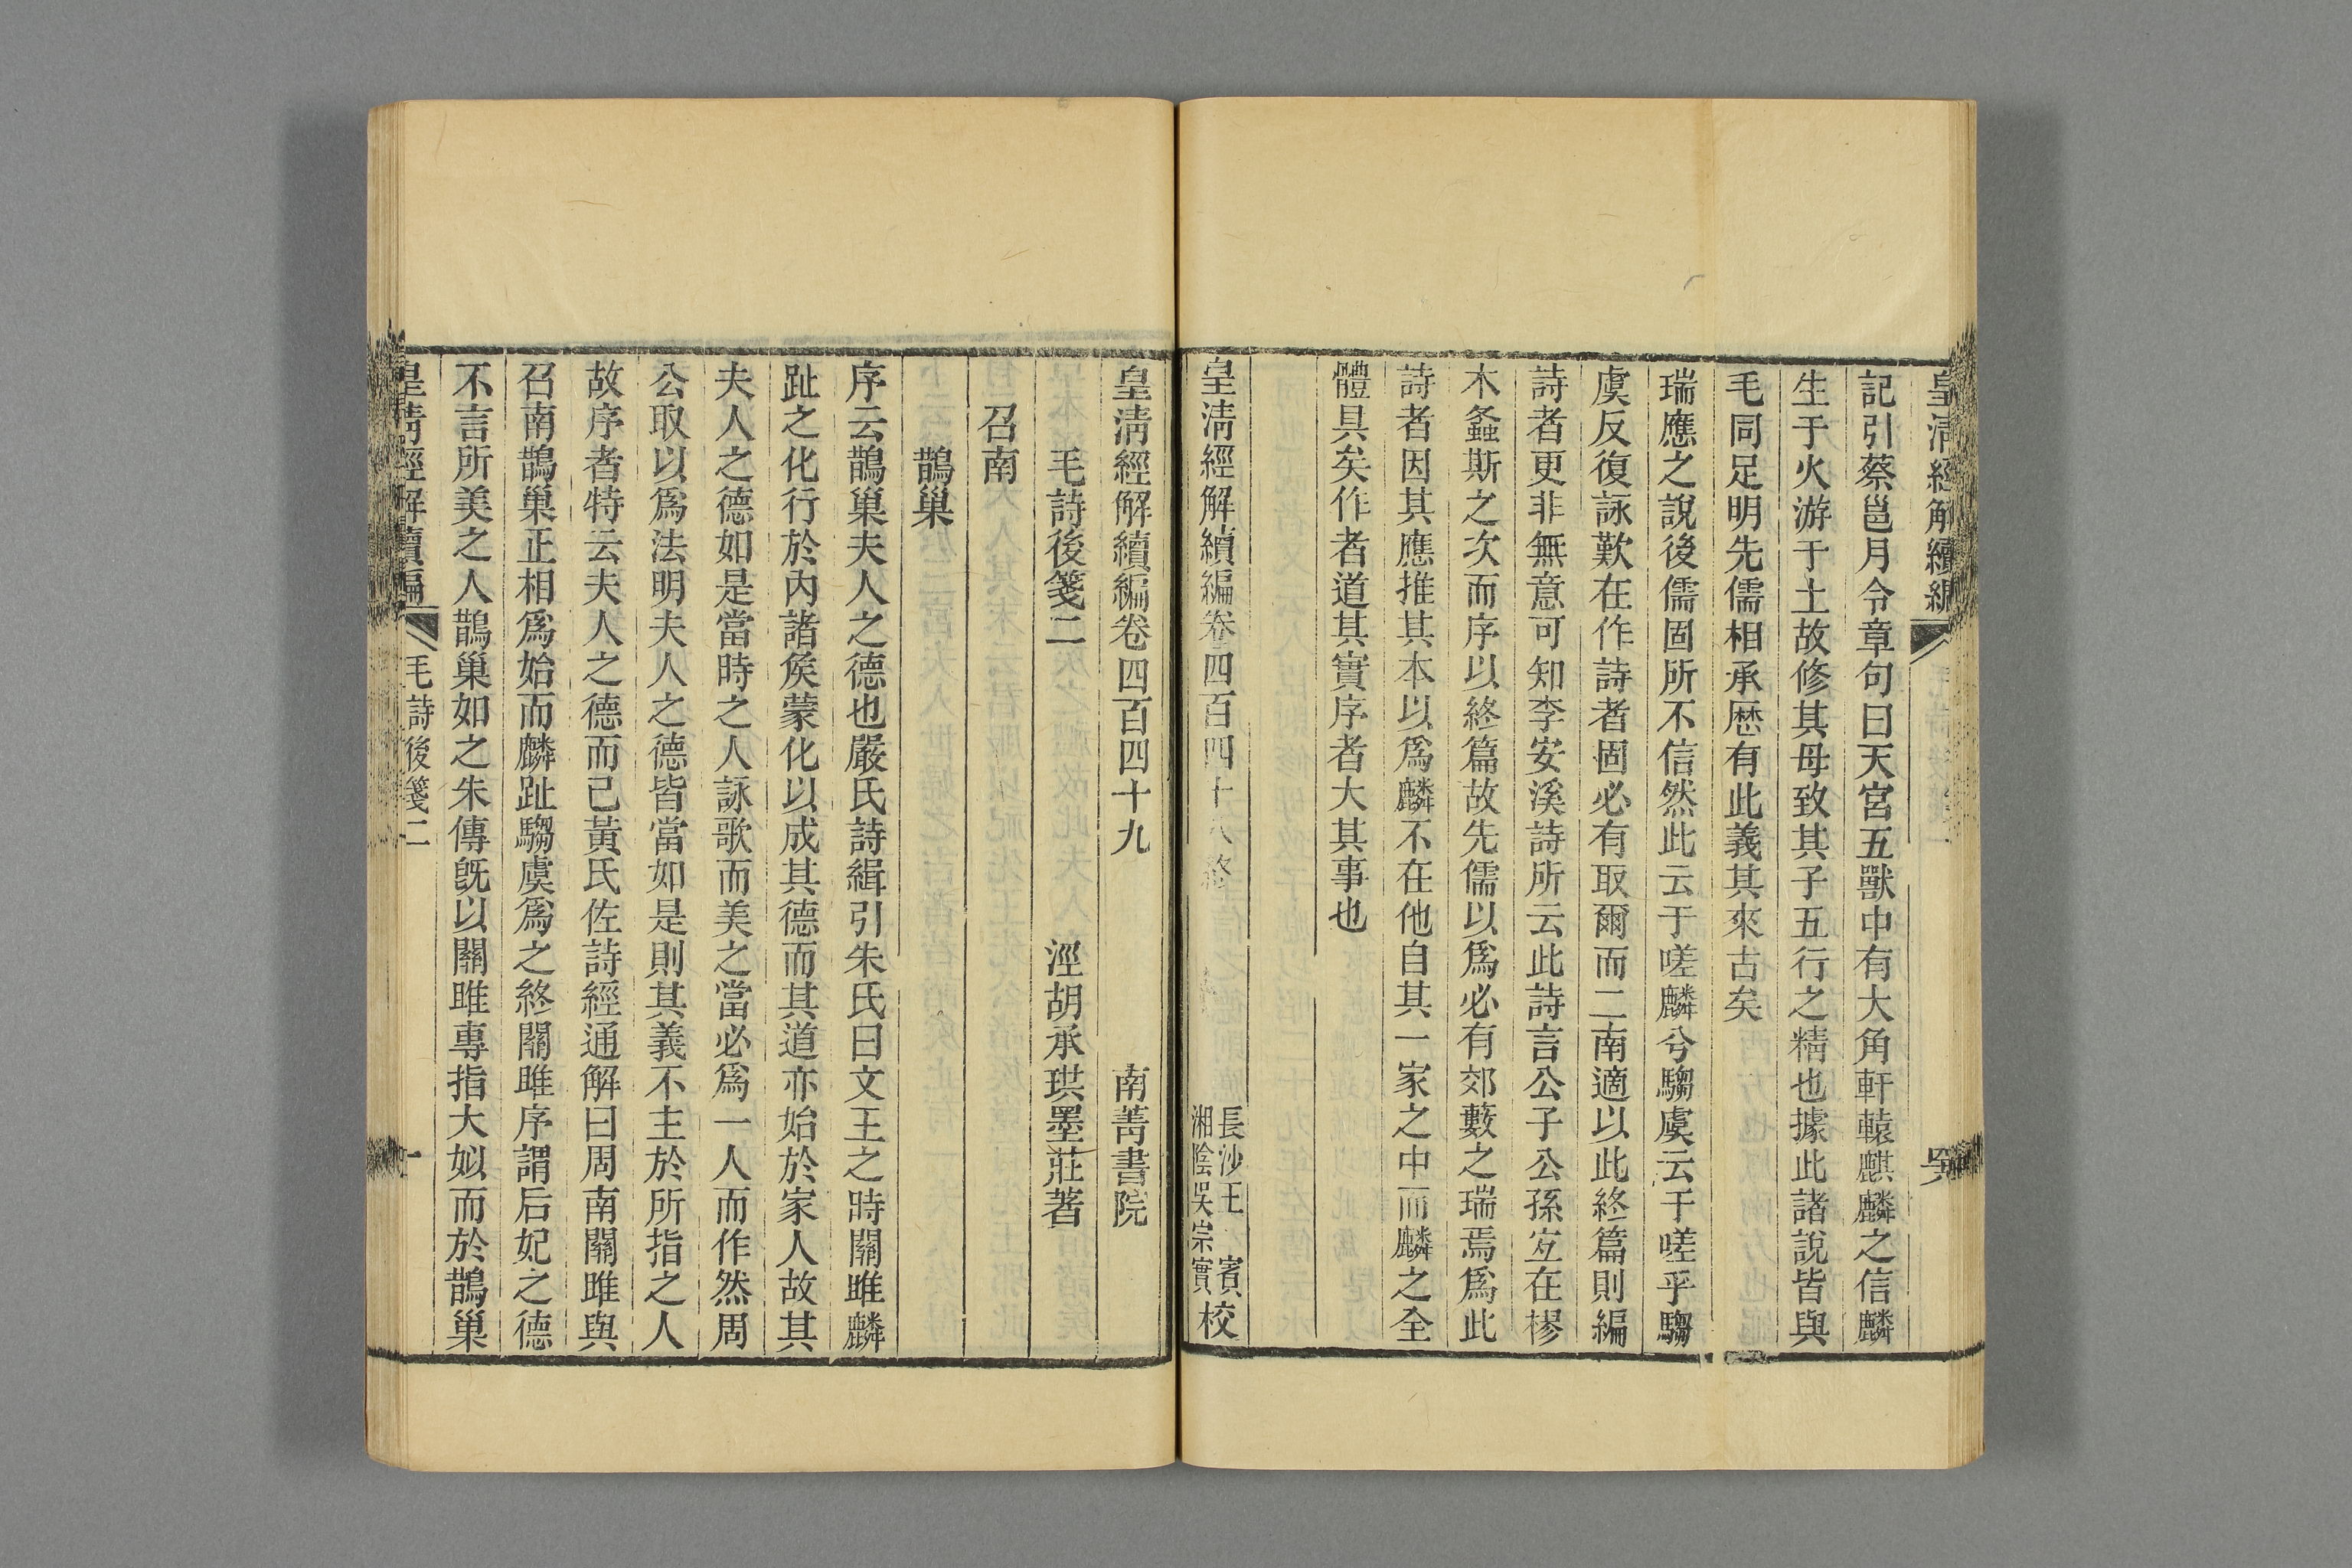 皇清經解續編
記引蔡邕月令章句曰天宮五獸中有大角軒轅麒麟之信麟
生于火游于土故修其母致其子五行之精也據此諸說皆與
毛同足明先儒相承歷有此義其來古矣
瑞應之說後儒固所不信然此云于嗟麟兮騶虞云于嗟乎騶
虞反復詠歎在作詩者固必有取爾而二南適以此終篇則編
詩者更非無意可知李安溪詩所云此詩言公子公孫宐在樛
木螽斯之次而序以終篇故先儒以爲必有郊藪之瑞焉爲此
詩者因其應推其本以爲麟不在他自其一家之中而麟之全
體具矣作者道其實序者大其事也
皇清經解續編卷四百四十八終
長沙王 賓
湘陰吳宗實
校
皇清經解續編卷四百四十九
南菁書院
毛詩後箋二
涇胡承珙墨莊著
召南
鵲巢
序云鵲巢夫人之德也嚴氏詩緝引朱氏曰文王之時關雎麟
趾之化行於內諸矦蒙化以成其德而其道亦始於家人故其
夫人之德如是當時之人詠歌而美之當必爲一人而作然周
公取以爲法明夫人之德皆當如是則其義不主於所指之人
故序者特云夫人之德而已黃氏佐詩經通解曰周南關雎與
召南鵲巢正相爲始而麟趾騶虞爲之終關雎序謂后妃之德
不言所美之人鵲巢如之朱傳旣以關雎專指大姒而於鵲巢
皇清經解續編
毛詩後箋二
一